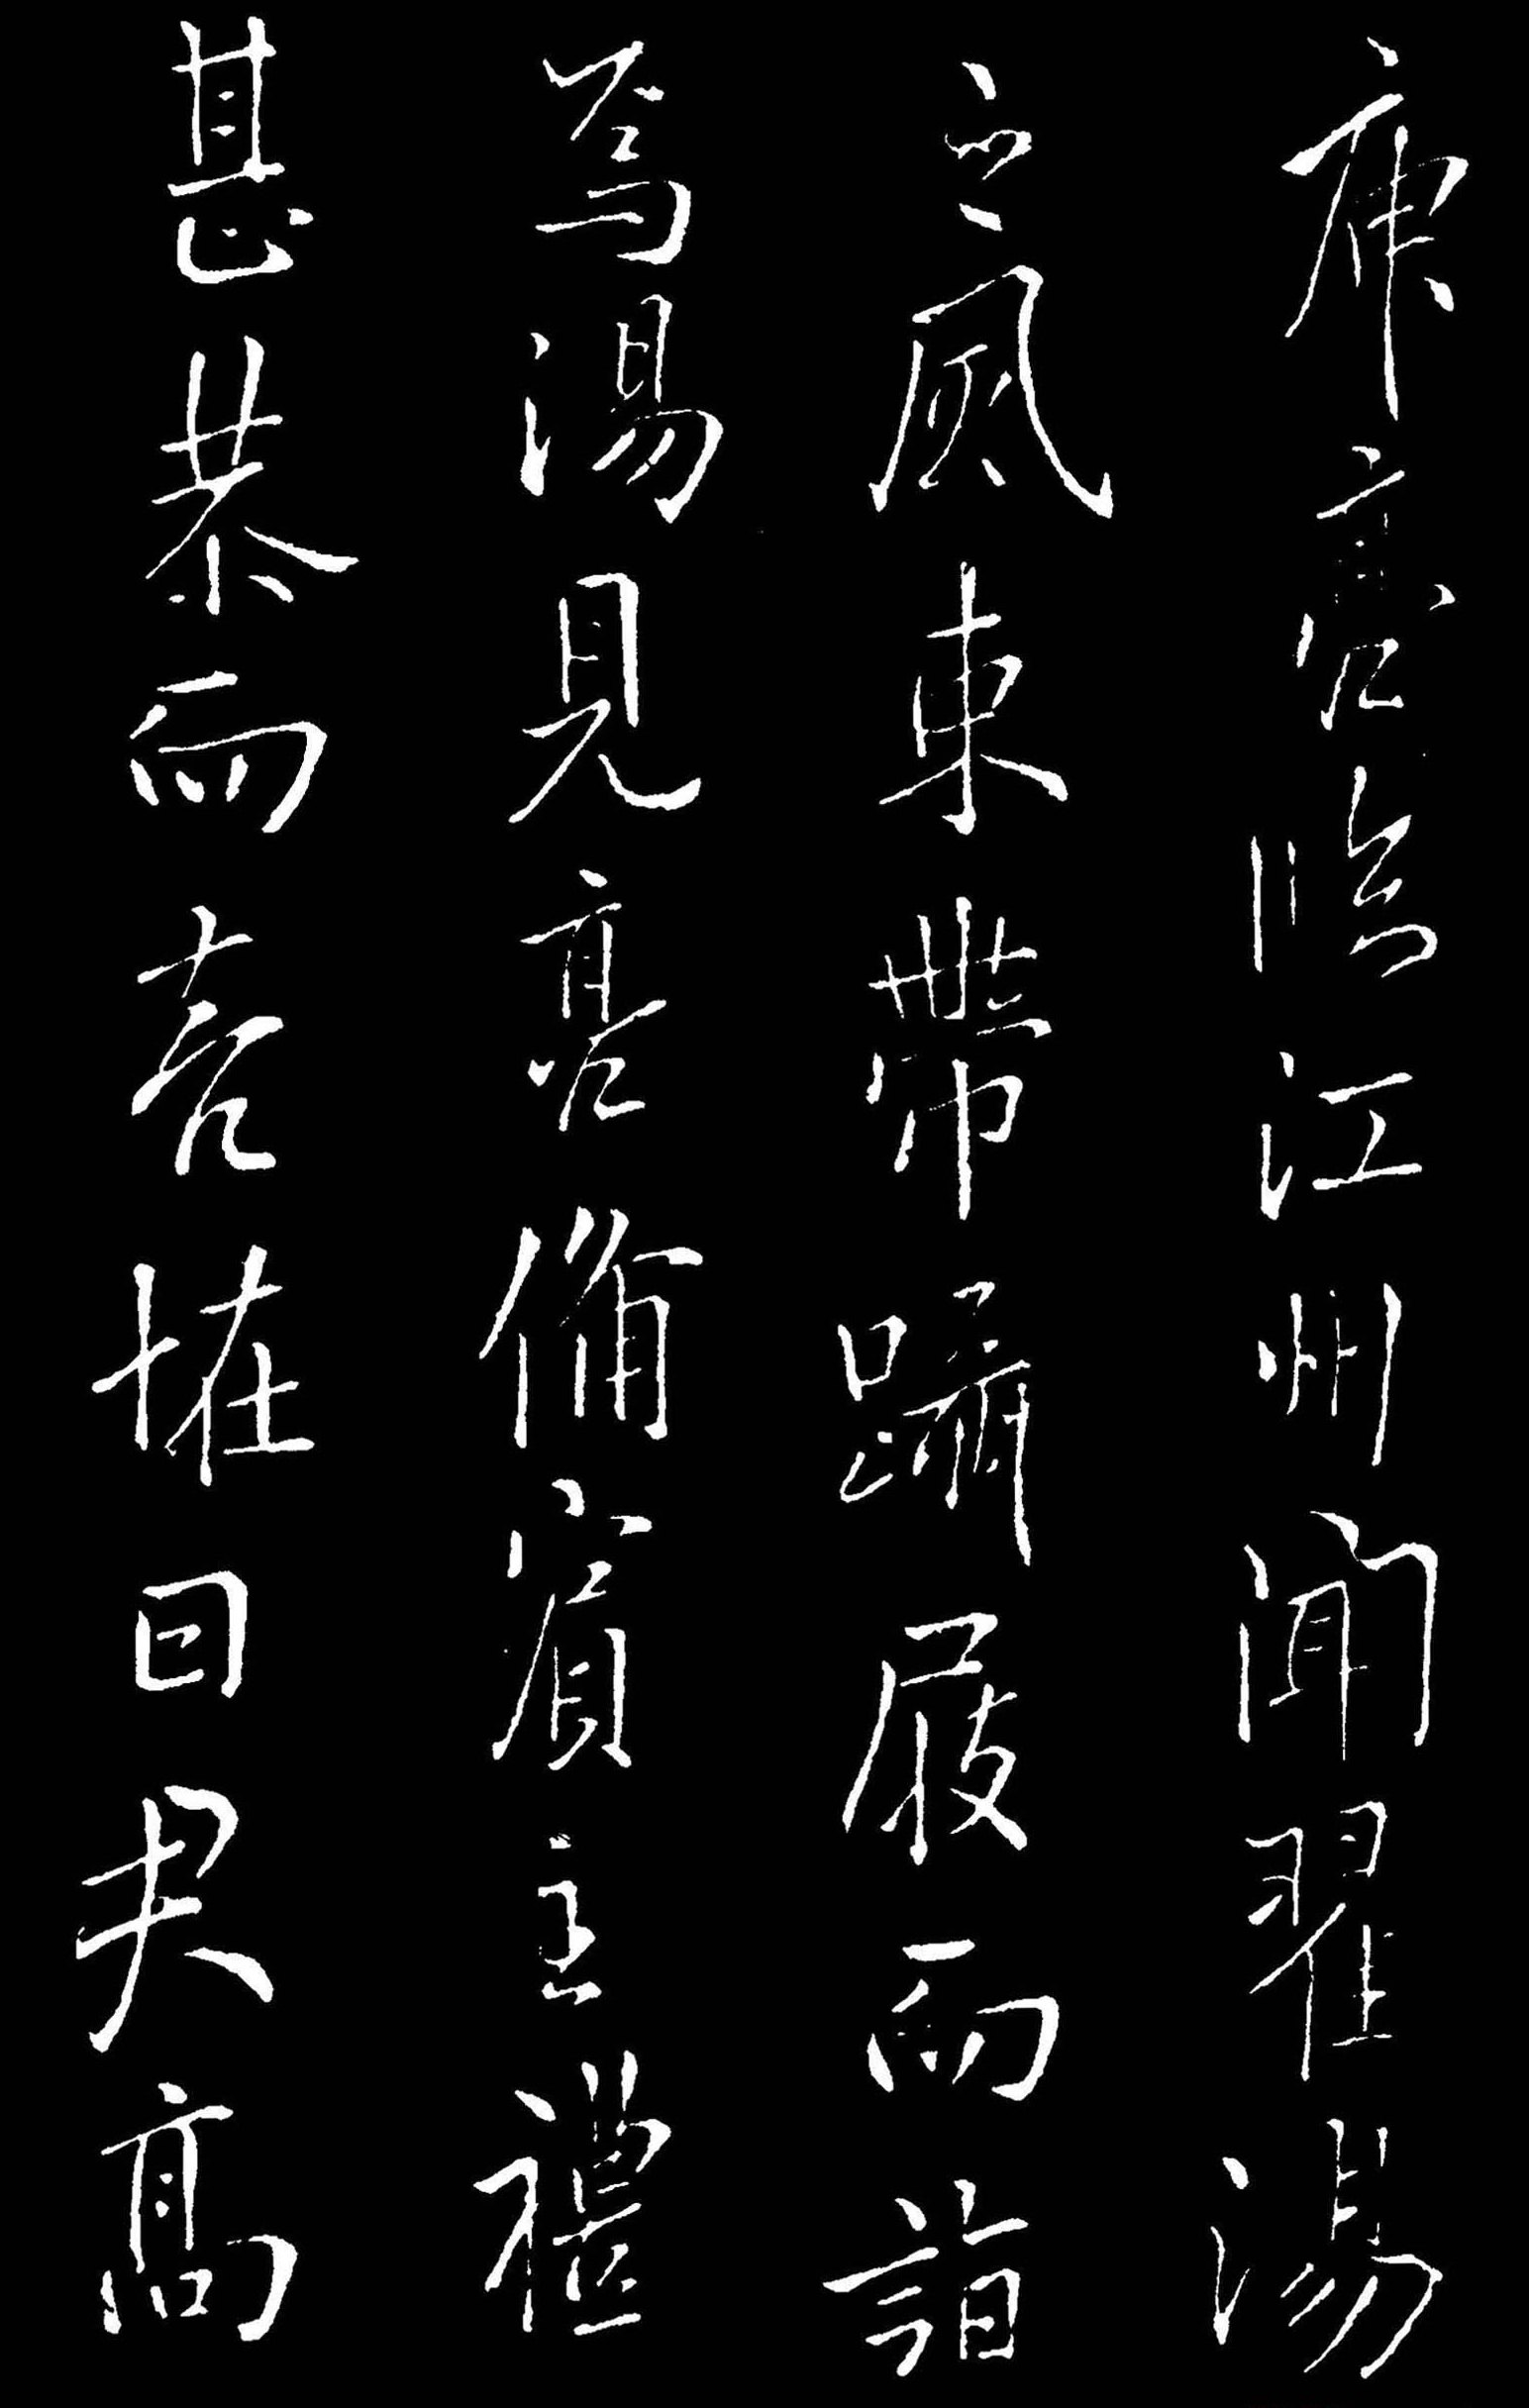 庾亮臨江州聞翟湯
之風束帶躡屐而詣
焉湯見亮備賓主禮
甚恭而亮恠曰君高